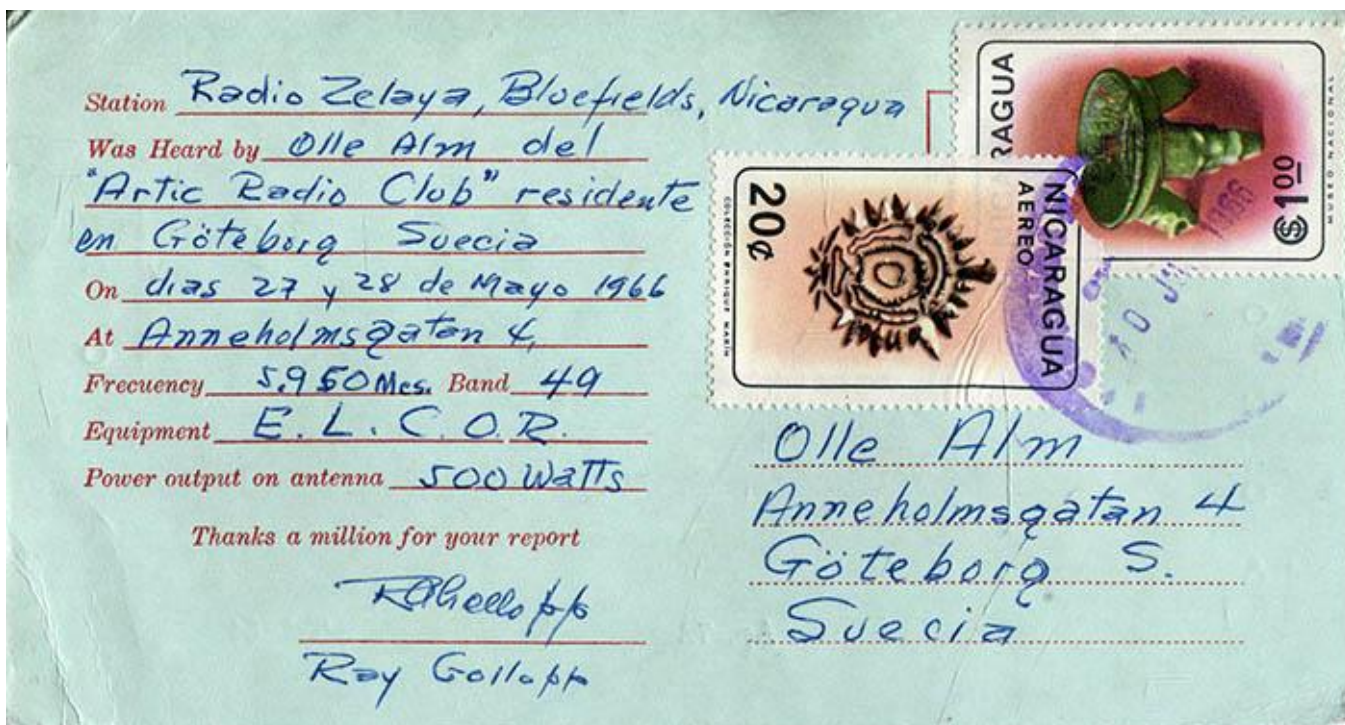 Station Radio Zelaya, Bluefields, Nicaragua
Was Heard by Olle Alm del
"Artic Radio Club" residente
en Göteborg Suecia
On dias 27 y 28 de Mayo 1966
At Anneholmsgatan 4,
Frecuency 5,950 Mcs. Band 49
Equipment E. L. C. O. R.
Power output on antenna 500 Watts
Thanks a million for your report
Ray Gollopp
RAGUA
$1.00
MUSEO NACIONAL
NICARAGUA
AEREO
20¢
COLECCIÓN ENRIQUE MARÍN
1966
Olle Alm
Anneholmsgatan 4
Göteborg S.
Suecia